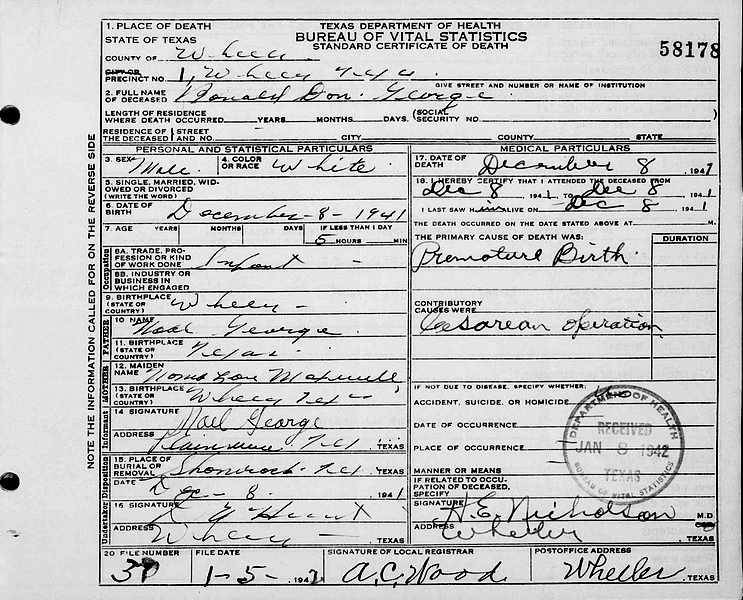 TEXAS DEPARTMENT OF HEALTH
BUREAU OF VITAL STATISTICS
STANDARD CERTIFICATE OF DEATH
58178
1. PLACE OF DEATH
STATE OF TEXAS
COUNTY OF Wheeler
CITY OR
PRECINCT NO. 1, Wheeler Texas
GIVE STREET AND NUMBER OR NAME OF INSTITUTION
2. FULL NAME
OF DECEASED Donald Don George
LENGTH OF RESIDENCE
WHERE DEATH OCCURRED YEARS MONTHS DAYS. (SOCIAL SECURITY NO.
RESIDENCE OF THE DECEASED STREET AND NO. CITY COUNTY STATE
PERSONAL AND STATISTICAL PARTICULARS
3. SEX Male 4. COLOR OR RACE White
5. SINGLE, MARRIED, WIDOWED OR DIVORCED
(WRITE THE WORD)
6. DATE OF BIRTH December-8-1941
7. AGE YEARS MONTHS DAYS IF LESS THAN 1 DAY
5 HOURS MIN
Occupation
8A. TRADE, PROFESSION OR KIND OF WORK DONE Infant -
8B. INDUSTRY OR BUSINESS IN WHICH ENGAGED
9. BIRTHPLACE (STATE OR COUNTRY) Wheeler -
FATHER
10 NAME Noel George
11. BIRTHPLACE (STATE OR COUNTRY) Texas
MOTHER
12. MAIDEN NAME Lou Maxwell
13. BIRTHPLACE (STATE OR COUNTRY) Wheeler Tex
Informant
14 SIGNATURE Noel George
ADDRESS Tex TEXAS
Disposition
15. PLACE OF BURIAL OR REMOVAL Shamrock Tex TEXAS
DATE Dec - 8. 1941
Undertaker
16 SIGNATURE
ADDRESS Wheeler - TEXAS
MEDICAL PARTICULARS
17. DATE OF DEATH December 8, 1941
18. I HEREBY CERTIFY THAT I ATTENDED THE DECEASED FROM
Dec 8 1941 TO Dec 8 1941
I LAST SAW H im ALIVE ON Dec 8 1941
THE DEATH OCCURRED ON THE DATE STATED ABOVE AT M.
THE PRIMARY CAUSE OF DEATH WAS: DURATION
Premature Birth
CONTRIBUTORY CAUSES WERE
Cesarean operation
IF NOT DUE TO DISEASE, SPECIFY WHETHER:
ACCIDENT, SUICIDE, OR HOMICIDE
DATE OF OCCURRENCE
PLACE OF OCCURRENCE
MANNER OR MEANS
IF RELATED TO OCCUPATION OF DECEASED, SPECIFY
SIGNATURE H. E. Nicholson M.D
ADDRESS Wheeler TEXAS
DEPARTMENT OF HEALTH
RECEIVED
JAN 8 1942
TEXAS
BUREAU OF VITAL STATISTICS
20 FILE NUMBER 37
FILE DATE 1-5-1942
SIGNATURE OF LOCAL REGISTRAR A.C. Wood
POSTOFFICE ADDRESS Wheeler, TEXAS
NOTE THE INFORMATION CALLED FOR ON THE REVERSE SIDE